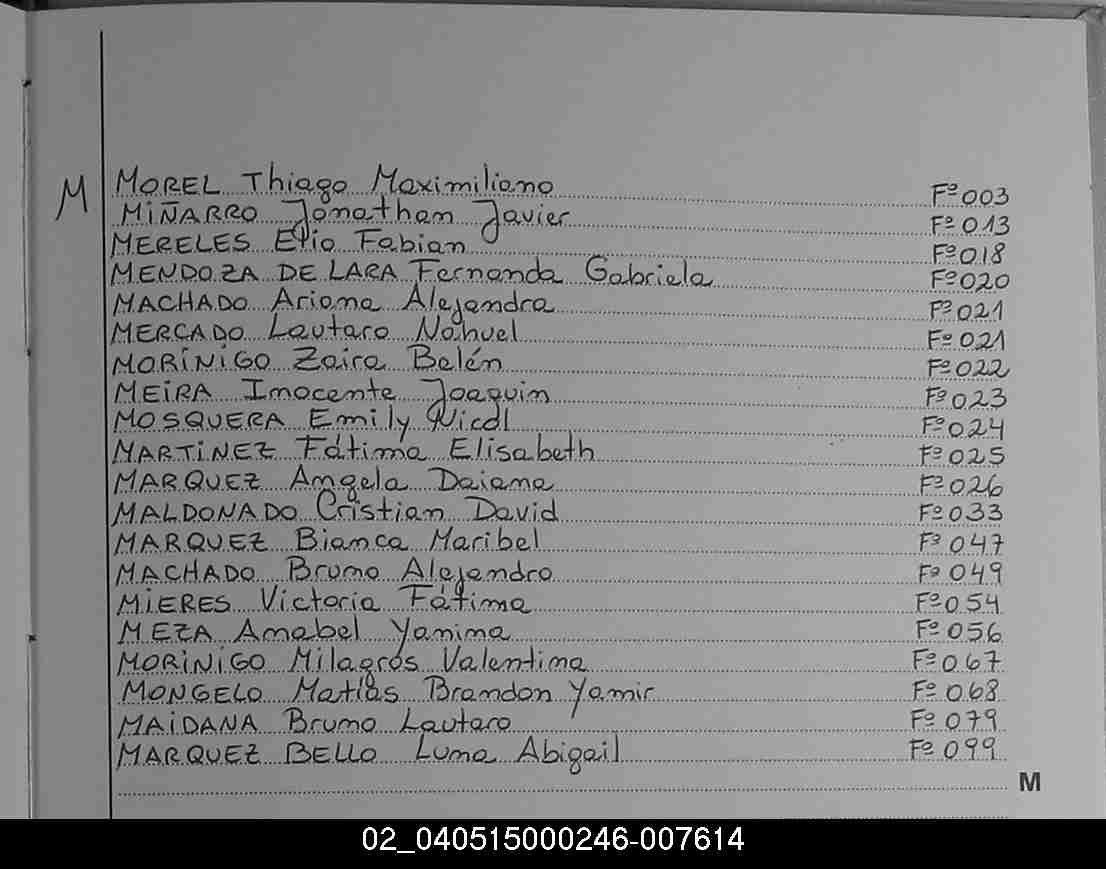 M
MOREL Thiago Maximiliano Fº 003
MIÑARRO Jonathan Javier Fº 013
MERELES Elio Fabian Fº 018
MENDOZA DE LARA Fernanda Gabriela Fº 020
MACHADO Ariana Alejandra Fº 021
MERCADO Lautaro Nahuel Fº 021
MORÍNIGO Zaira Belén Fº 022
MEIRA Inocente Joaquin Fº 023
MOSQUERA Emily Nicol Fº 024
MARTÍNEZ Fátima Elisabeth Fº 025
MARQUEZ Angela Daiana Fº 026
MALDONADO Cristian David Fº 033
MARQUEZ Bianca Maribel Fº 047
MACHADO Bruno Alejandro Fº 049
MIERES Victoria Fátima Fº 054
MEZA Anabel Yanina Fº 056
MORINIGO Milagros Valentina Fº 067
MONGELO Matías Brandon Yamir Fº 068
MAIDANA Bruno Lautaro Fº 079
MARQUEZ BELLO Luna Abigail Fº 099
M
02_040515000246-007614